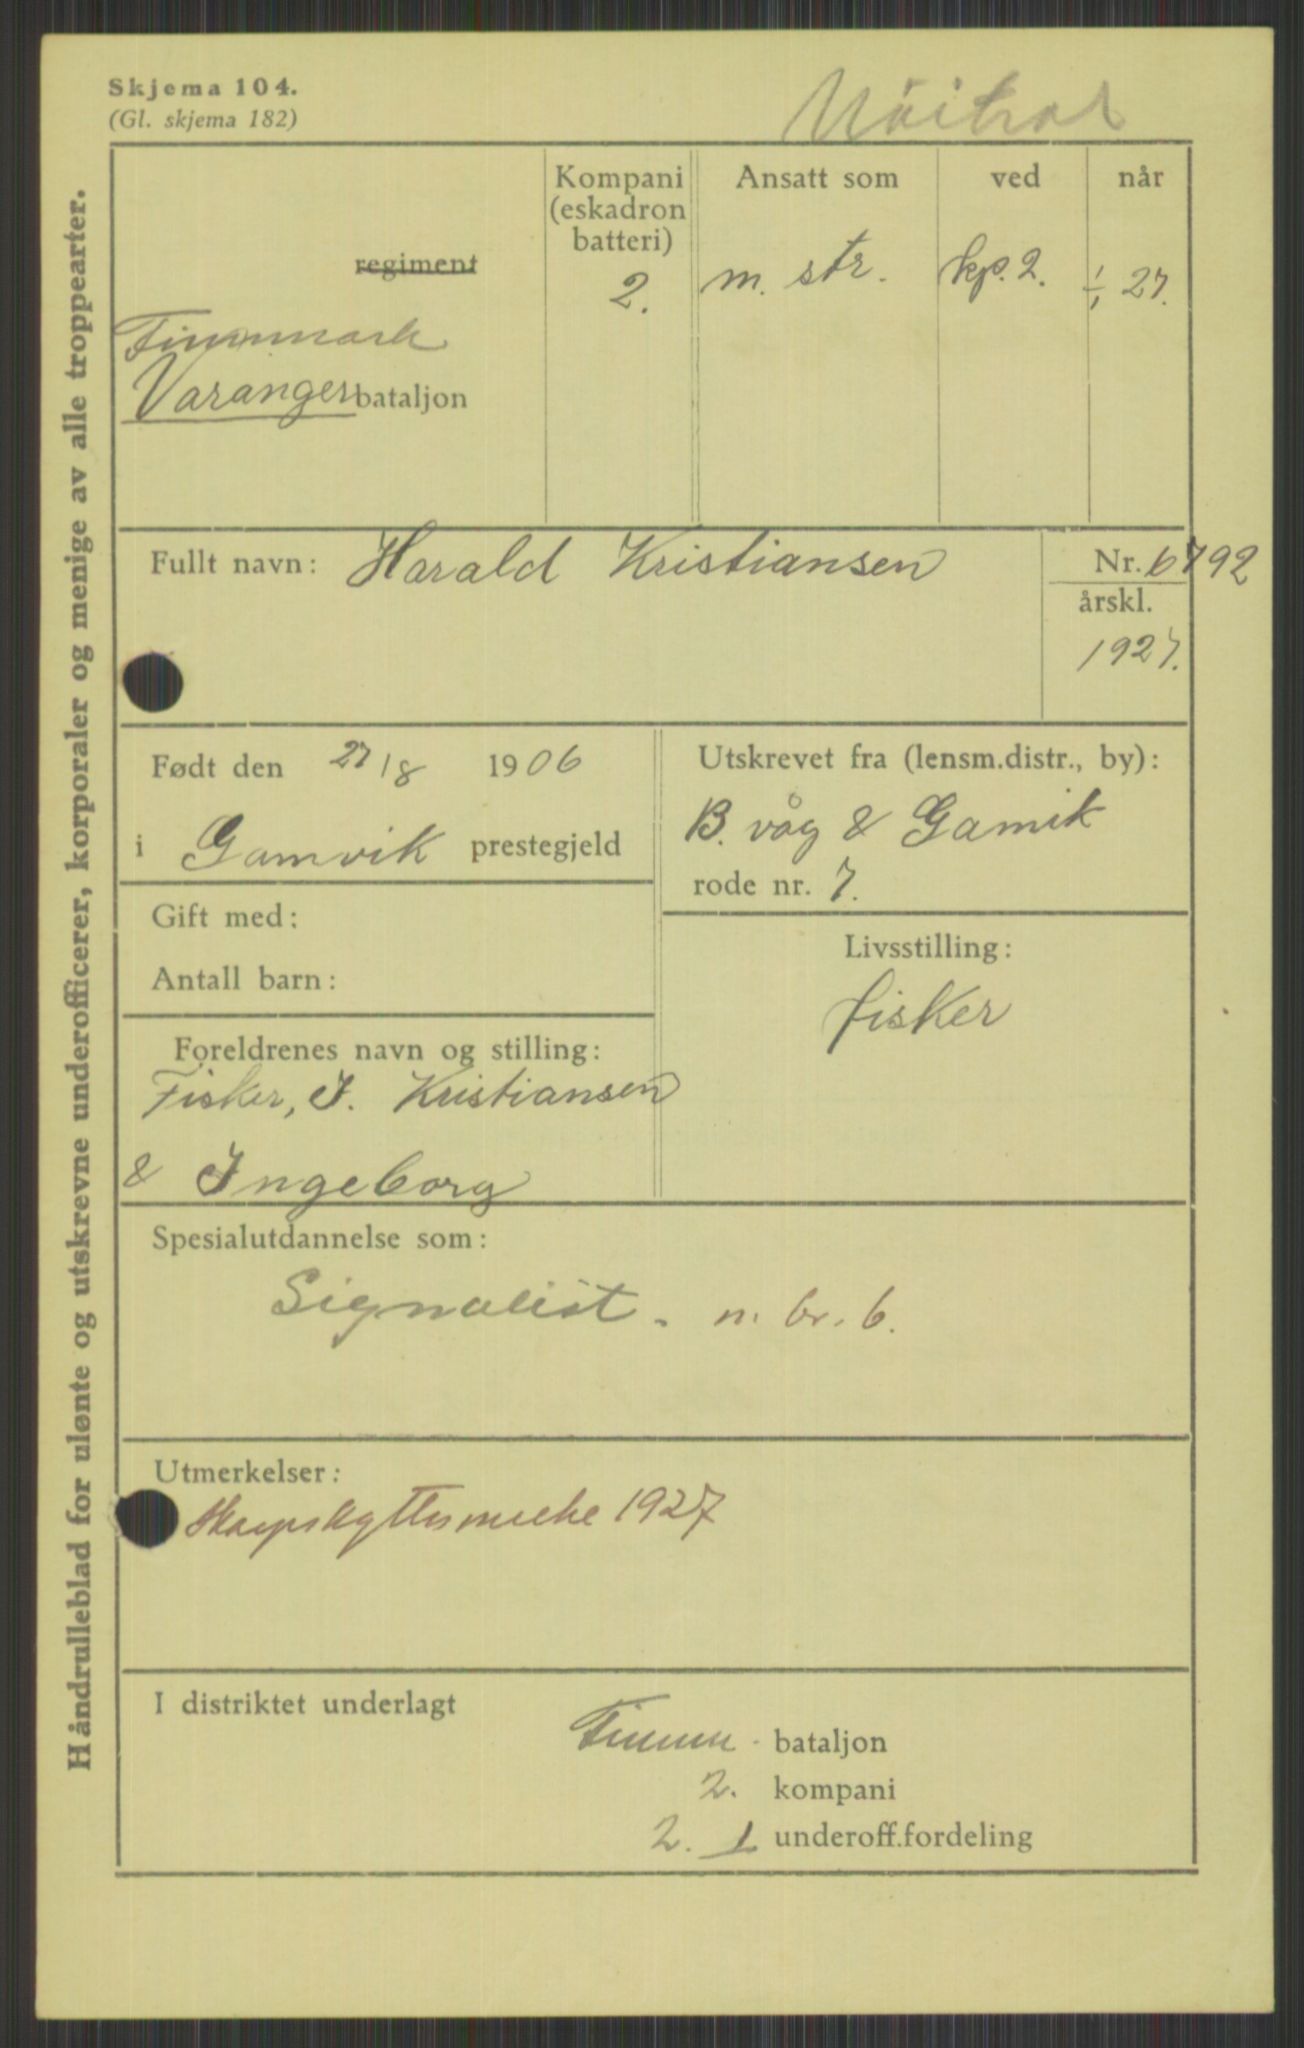 Skjema 104.
(Gl. skjema 182)
Håndrulleblad for ulønte og utskrevne underofficerer, korporaler og menige av alle troppearter.
Kompani (eskadron batteri) Ansatt som ved når
regiment
2. m. str. kp. 2. 1/1 27.
Finnmark
Varanger bataljon
Fullt navn: Harald Kristiansen Nr. 6792
årskl.
1927.
Født den 27/8 1906
i Gamvik prestegjeld
Utskrevet fra (lensm.distr., by):
B. våg & Gamik
rode nr. 7.
Gift med:
Antall barn:
Livsstilling:
fisker
Foreldrenes navn og stilling:
Fisker, J. Kristiansen
& Ingeborg
Spesialutdannelse som:
Signalist. n. br. 6.
Utmerkelser:
Skarpskyttermerke 1927
I distriktet underlagt
Finnm. bataljon
2. kompani
2. 1 underoff.fordeling